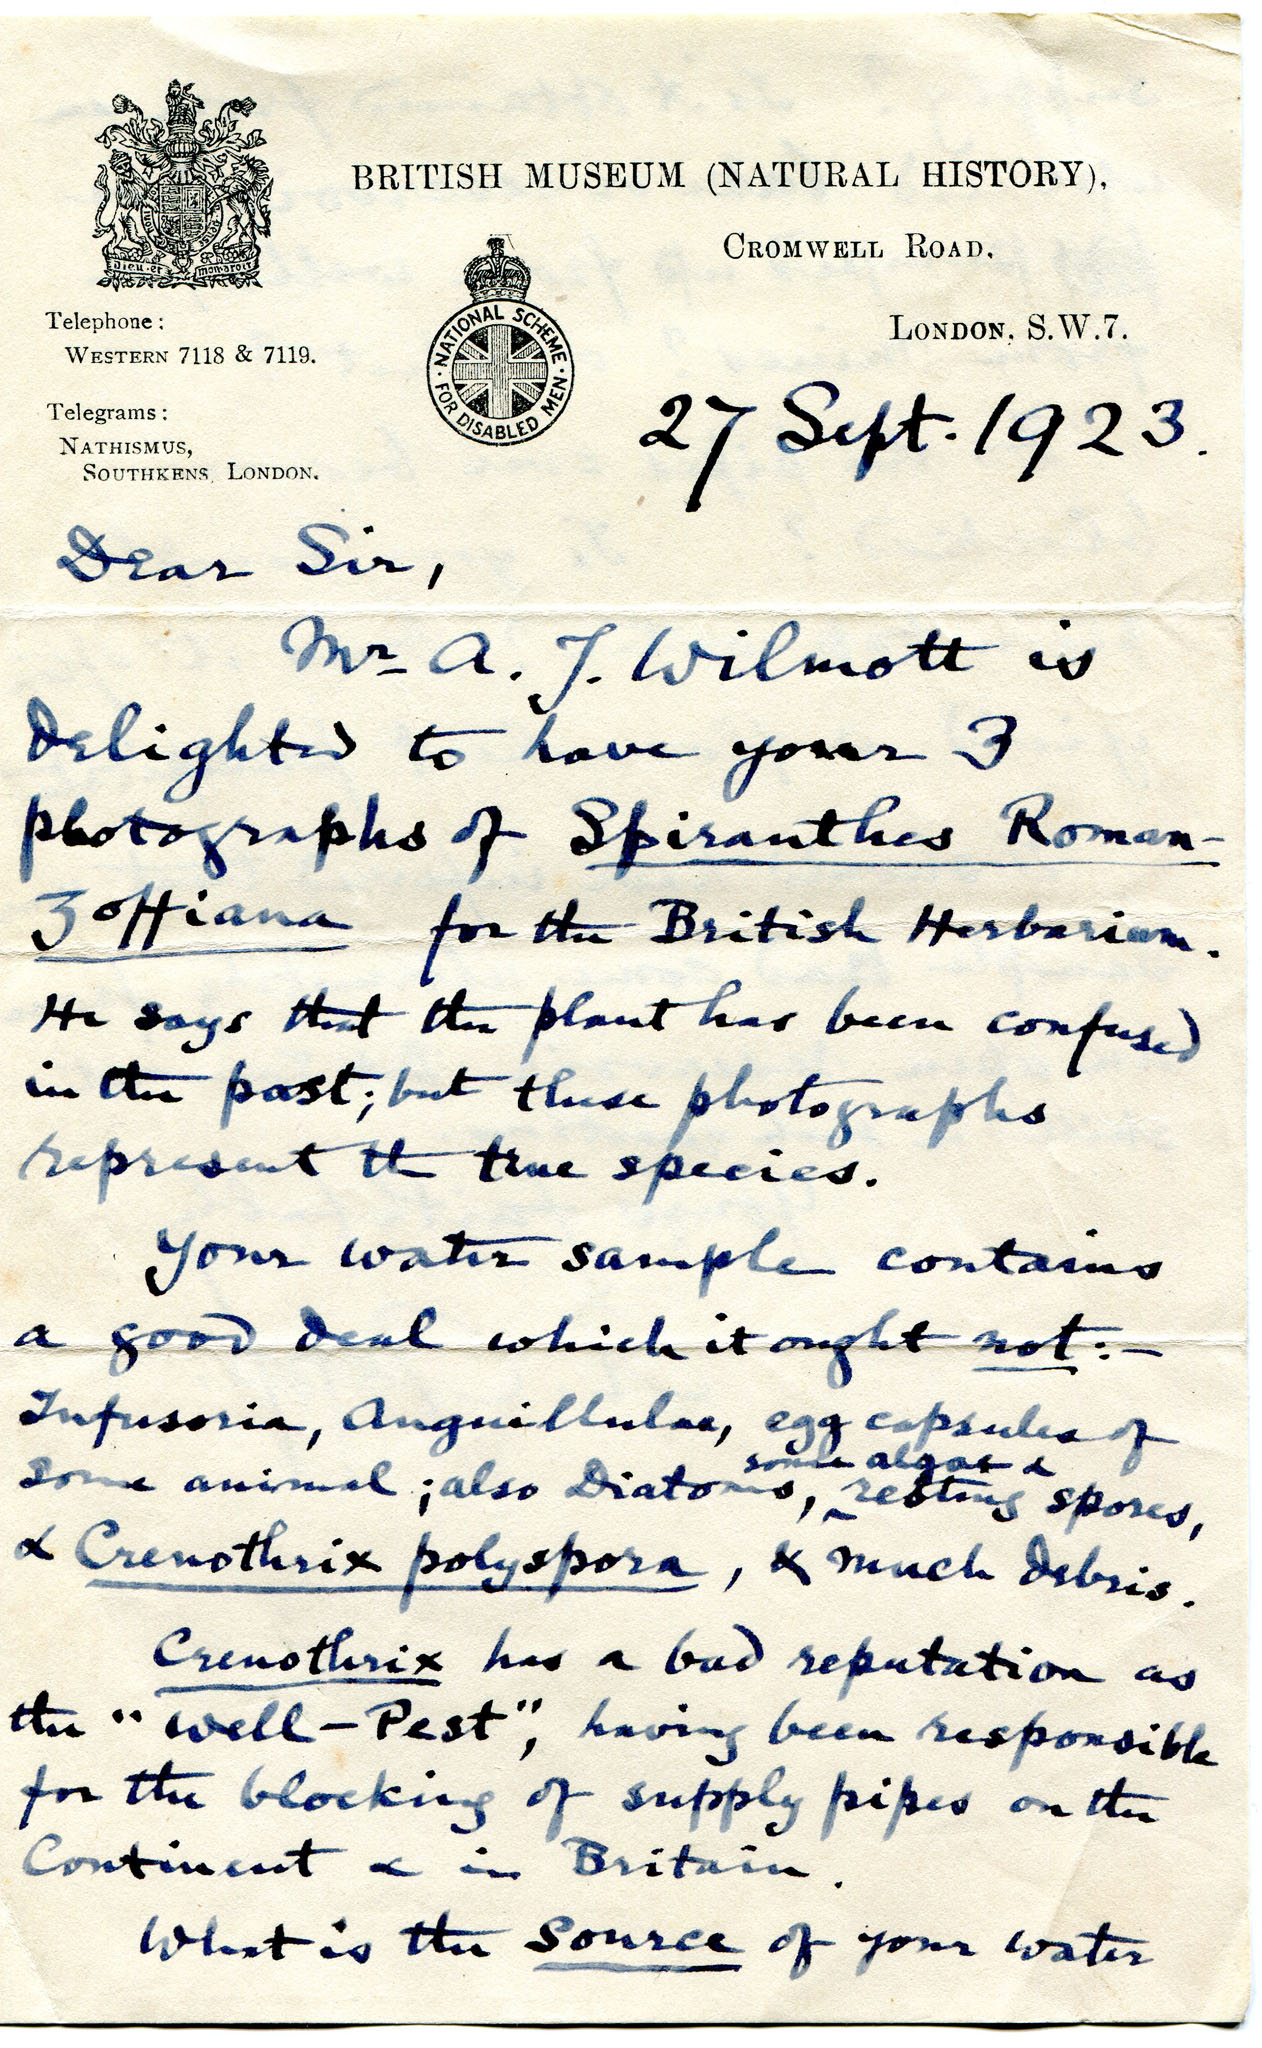 BRITISH MUSEUM (NATURAL HISTORY),
CROMWELL ROAD,
LONDON, S.W.7.
Dieu et mon droit
Telephone:
WESTERN 7118 & 7119.
Telegrams:
NATHISMUS,
SOUTHKENS, LONDON.
· NATIONAL SCHEME · FOR DISABLED MEN
27 Sept. 1923.
Dear Sir,
Mr A. J. Wilmott is
delighted to have your 3
photographs of Spiranthes Roman-
zoffiana for the British Herbarium.
He says that the plant has been confused
in the past; but these photographs
represent the true species.
Your water sample contains
a good deal which it ought not:-
Infusoria, Anguillulae, egg capsules of
some animal; also Diatoms, some algae & resting spores,
& Crenothrix polyspora, & much debris.
Crenothrix has a bad reputation as
the "Well-Pest", having been responsible
for the blocking of supply pipes on the
Continent & in Britain.
What is the source of your water